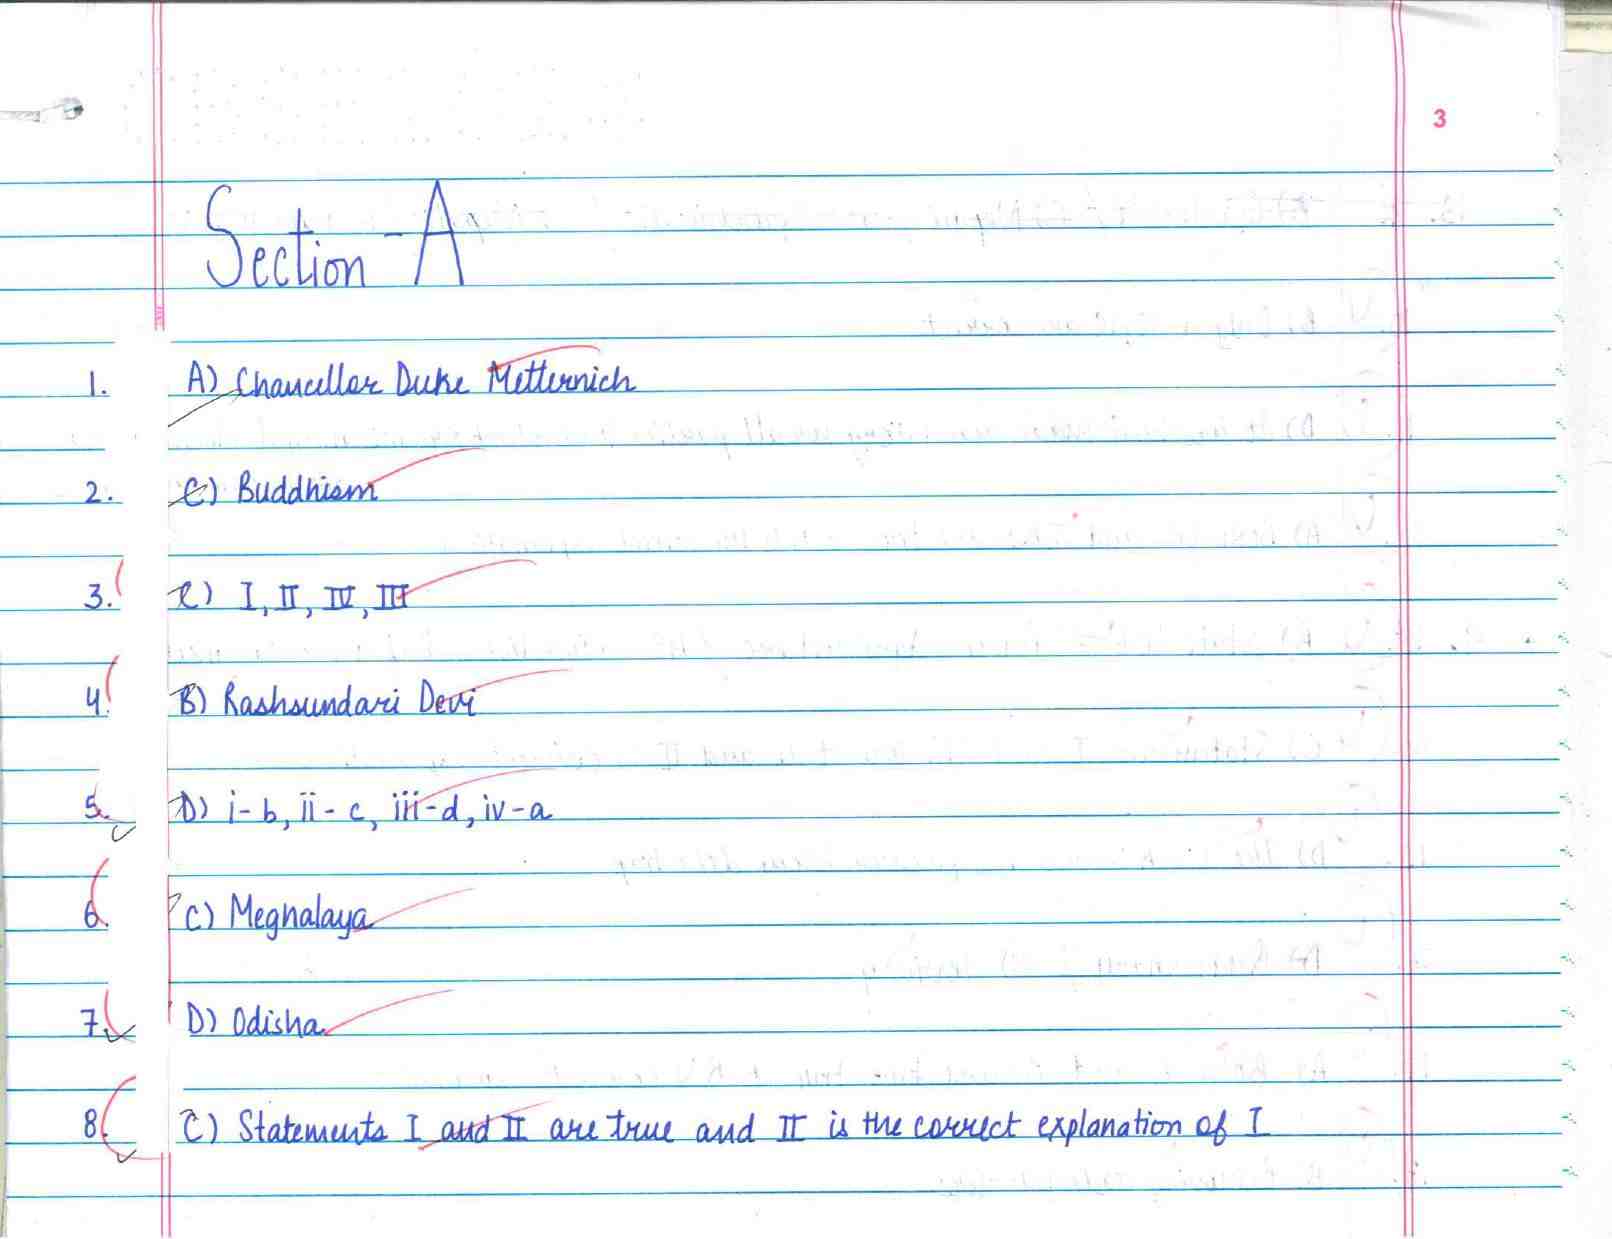 3
Section - A
1. A) Chancellor Duke Metternich
2. C) Buddhism
3. C) I, II, IV, III
4. B) Rashsundari Devi
5. D) i-b, ii-c, iii-d, iv-a
6. C) Meghalaya
7. D) Odisha
8. C) Statements I and II are true and II is the correct explanation of I